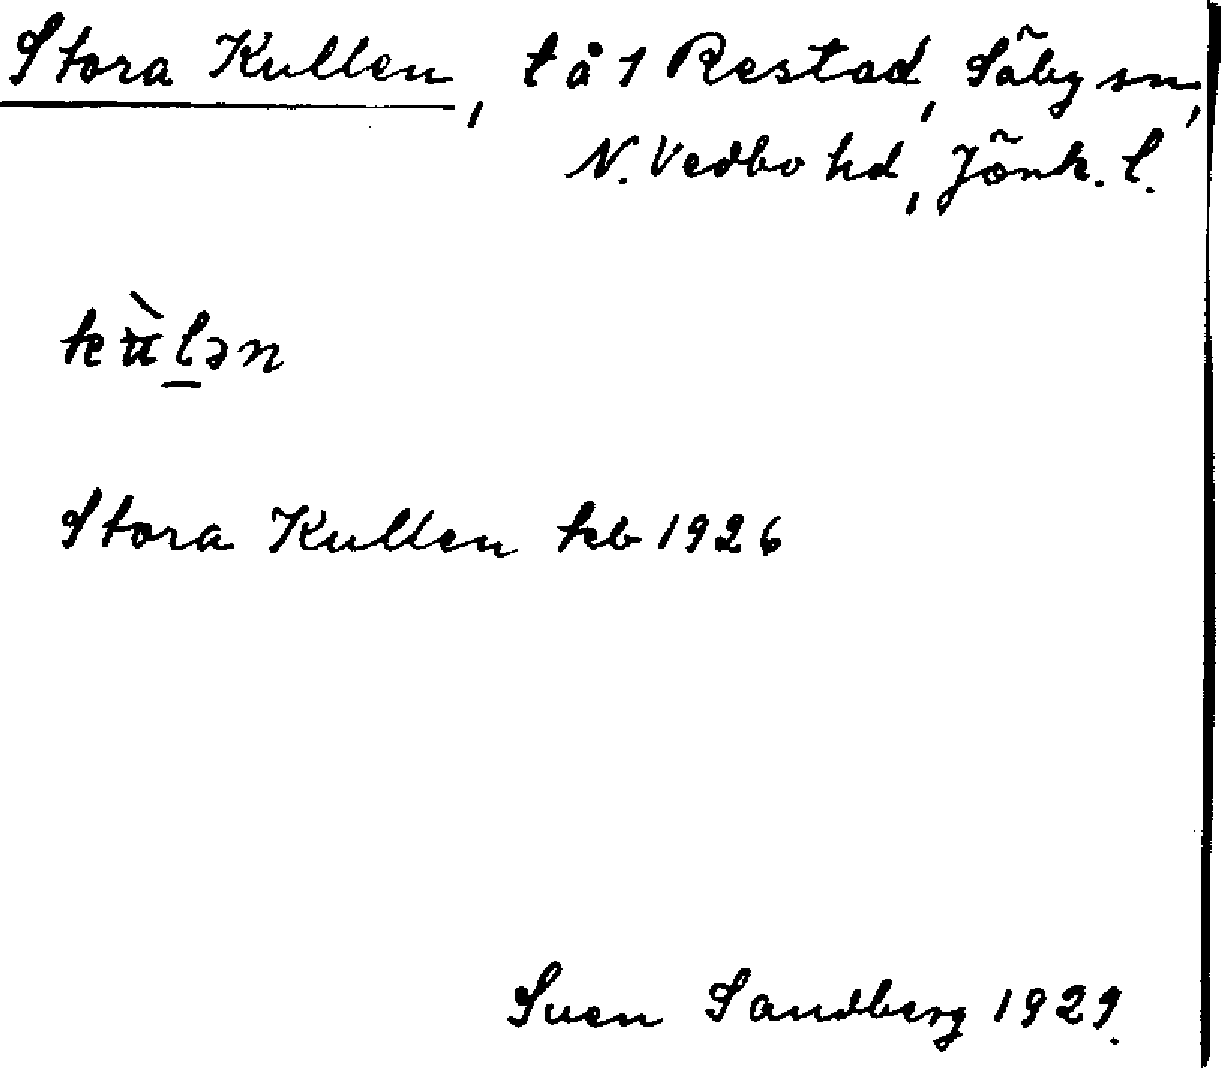 Stora Kullen, t å 1 Restad, Säby sn,
N. Vedbo hd, Jönk. l.
kùlən
Stora Kullen kb 1926
Sven Sandberg 1929.